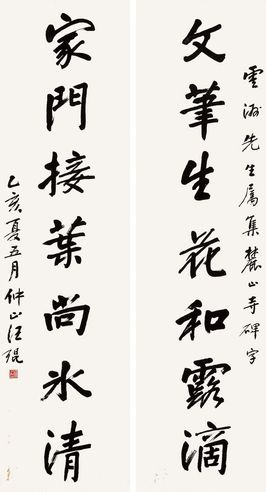 雲湖先生属集麓山寺碑字
文筆生花和露滴
家門接葉尚冰清
乙亥夏五月仲山汪琨